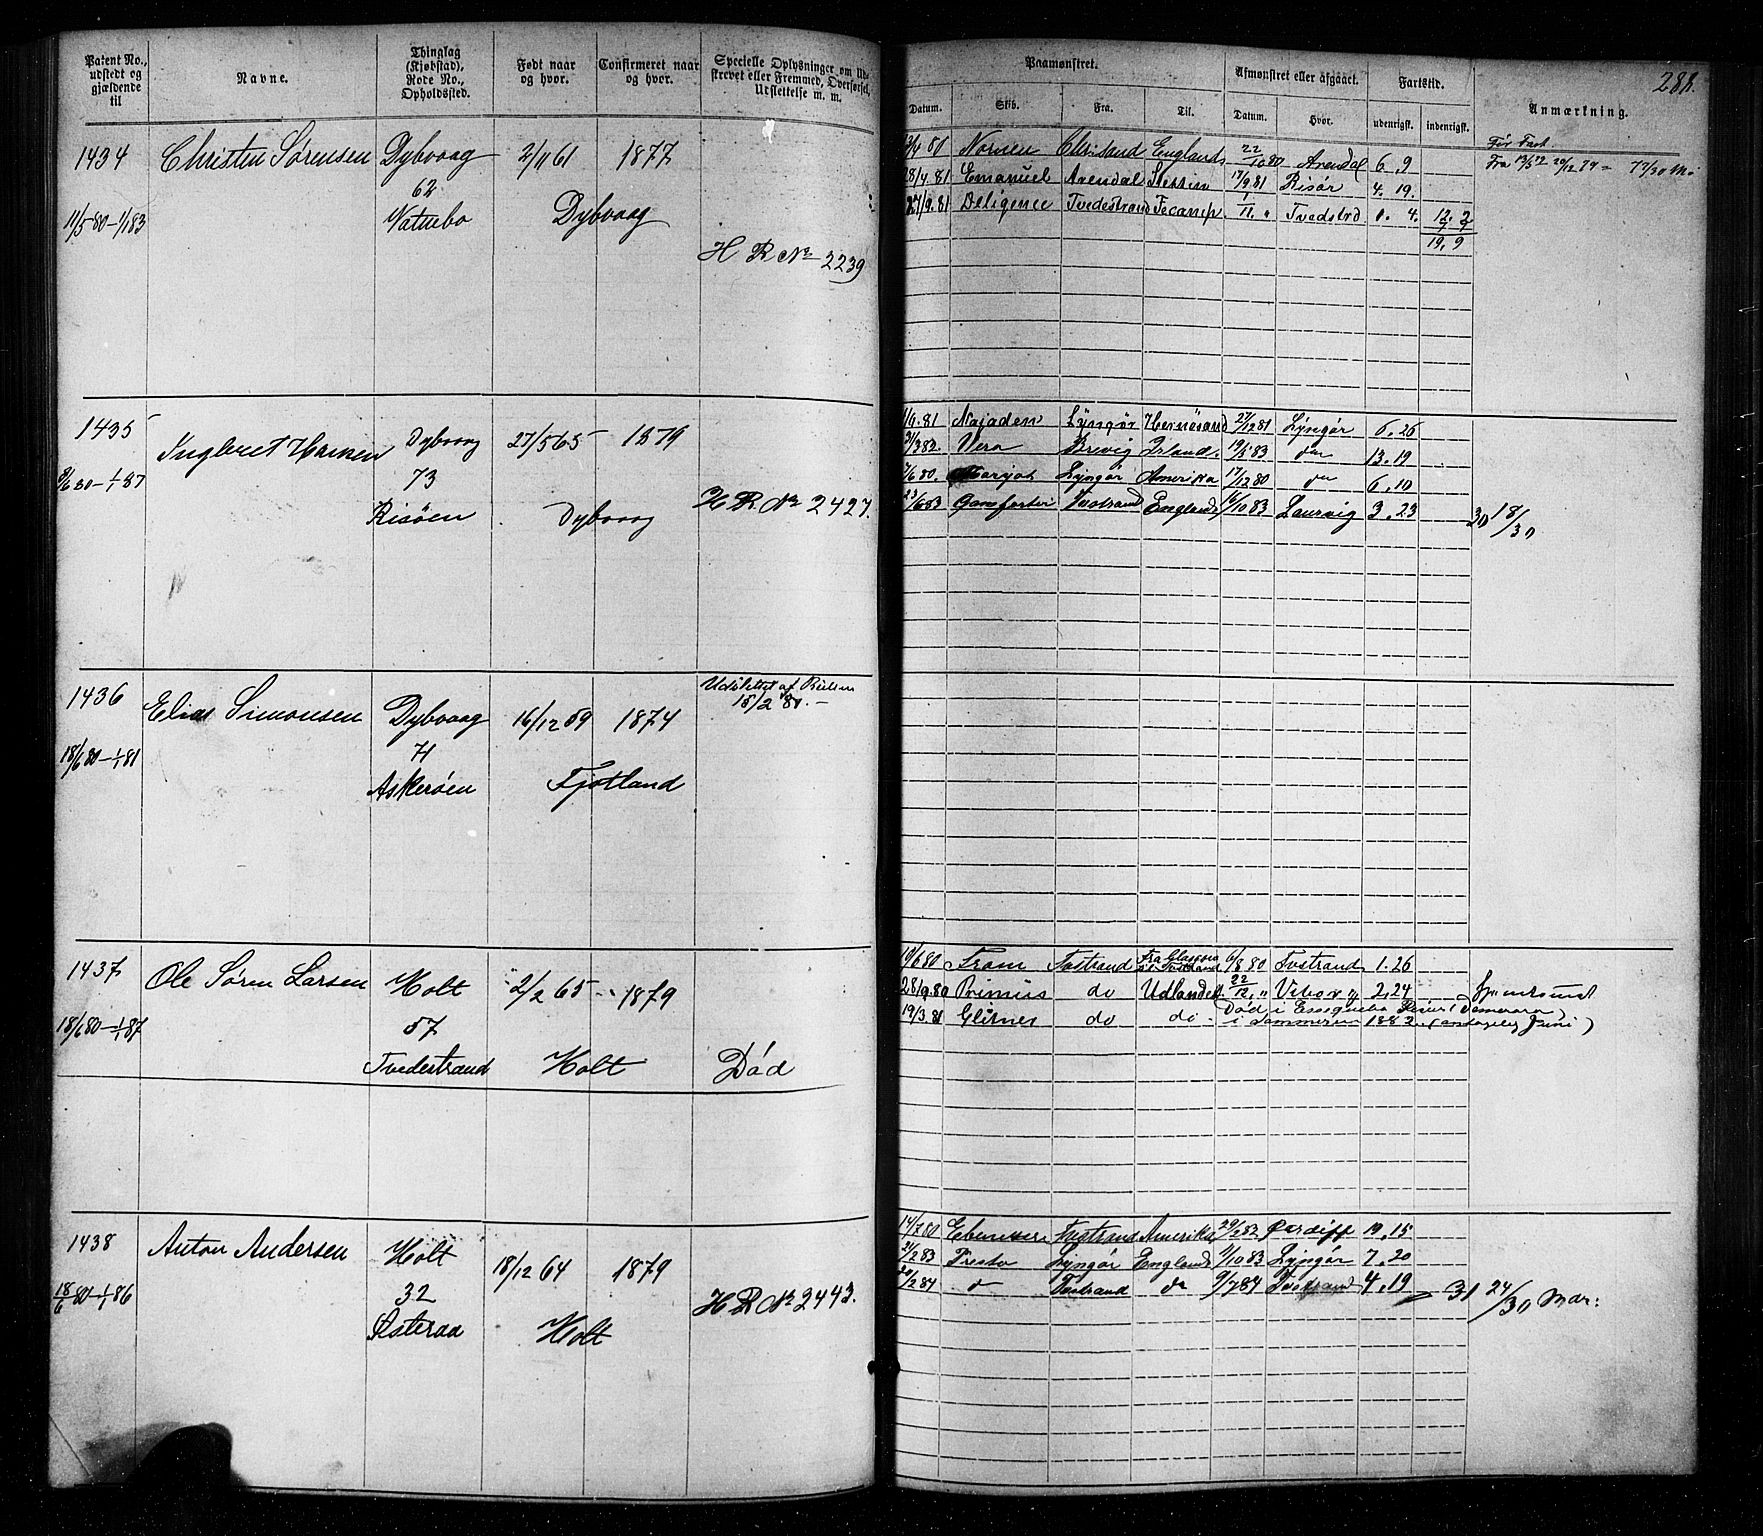 Patent No., udstedt og gjældende til
Navne.
Thinglag (Kjøbstad), Rode No., Opholdssted.
Født naar og hvor.
Confirmeret naar og hvor.
Specielle Oplysninger om Udskrevet eller Fremmed, Overførsel, Udslettelse m. m.
Paamønstret.
Datum. Skib. Fra. Til.
Afmønstret eller afgaaet.
Datum. Hvor.
Fartstid.
udenrigsk. indenrigsk.
Anmærkning.
288.
1434 Christen Sørensen Dybvaag 2/11 61 1877
62
11/5 80-1/1 83 Dybvaag
H R No 2239
80 Nornen Chrisand England 22/10 80 Arendal 6.9
28/4.81 Emanuel Arendal Stettin 17/9 81 Risør 4.19.
27/9.81 Deligence Tvedestrand Fecamp 1/11 " Tvedstrd 1.4. 12.2
19.9
Før Fart
Fra 13/5 72 20/12 79 = 77/30 M.
1435 Ingbret Hansen Dybvaag 27/5 65 1879
73
8/6 80-1/1 87 Risøen Dybvaag H R. No 2427.
1/9.81 Najaden Lyngør Hernøsand 27/12 81 Lyngør 6.26
Vera Brevig Irland. 19/5 83 do 13.19
7/6 80. Lyngør Amerika 17/12 80 do 6.10
23/6 83 Tvestrand England 16/10 83 Laurvig 3.23
30 18/30
1436 Elias Simonsen Dybvaag 16/12 59 1874
Udslettet af Rullen 15/2 81.-
71
18/6 80-1/1 81 Askerøen Fjotland
1437 Ole Søren Larsen Holt 2/2 65 1879
57
18/6 80-1/1 87 Tvedestrand Holt Død
19/6 80 Fram Tvstrand Fra Glasgow til Tvstrand 6/8 80 Tvstrand 1.26
28/9.80 Primus do Udlandet 22/12. " Viborg 2.24
19/3.81 Glitnes do do. Død i Essequebo River (Demerara)
i Sommeren 1882. (antagelig Juni)
1438 Anton Andersen Holt 18/12 64 1879
32
18/6 80-1/1 86 Østeraa Holt H R No 2443.
14/7 80 Ebenezer Tvstrand Amerika 29/2 82 Cardiff 19.15
21/2 83 Presto Lyngør England 11/10 83 Lyngør 7.20
20/2 84 do Tvstrand do 9/7 84 Tvstrand 4.19
31 24/30 Mdr: